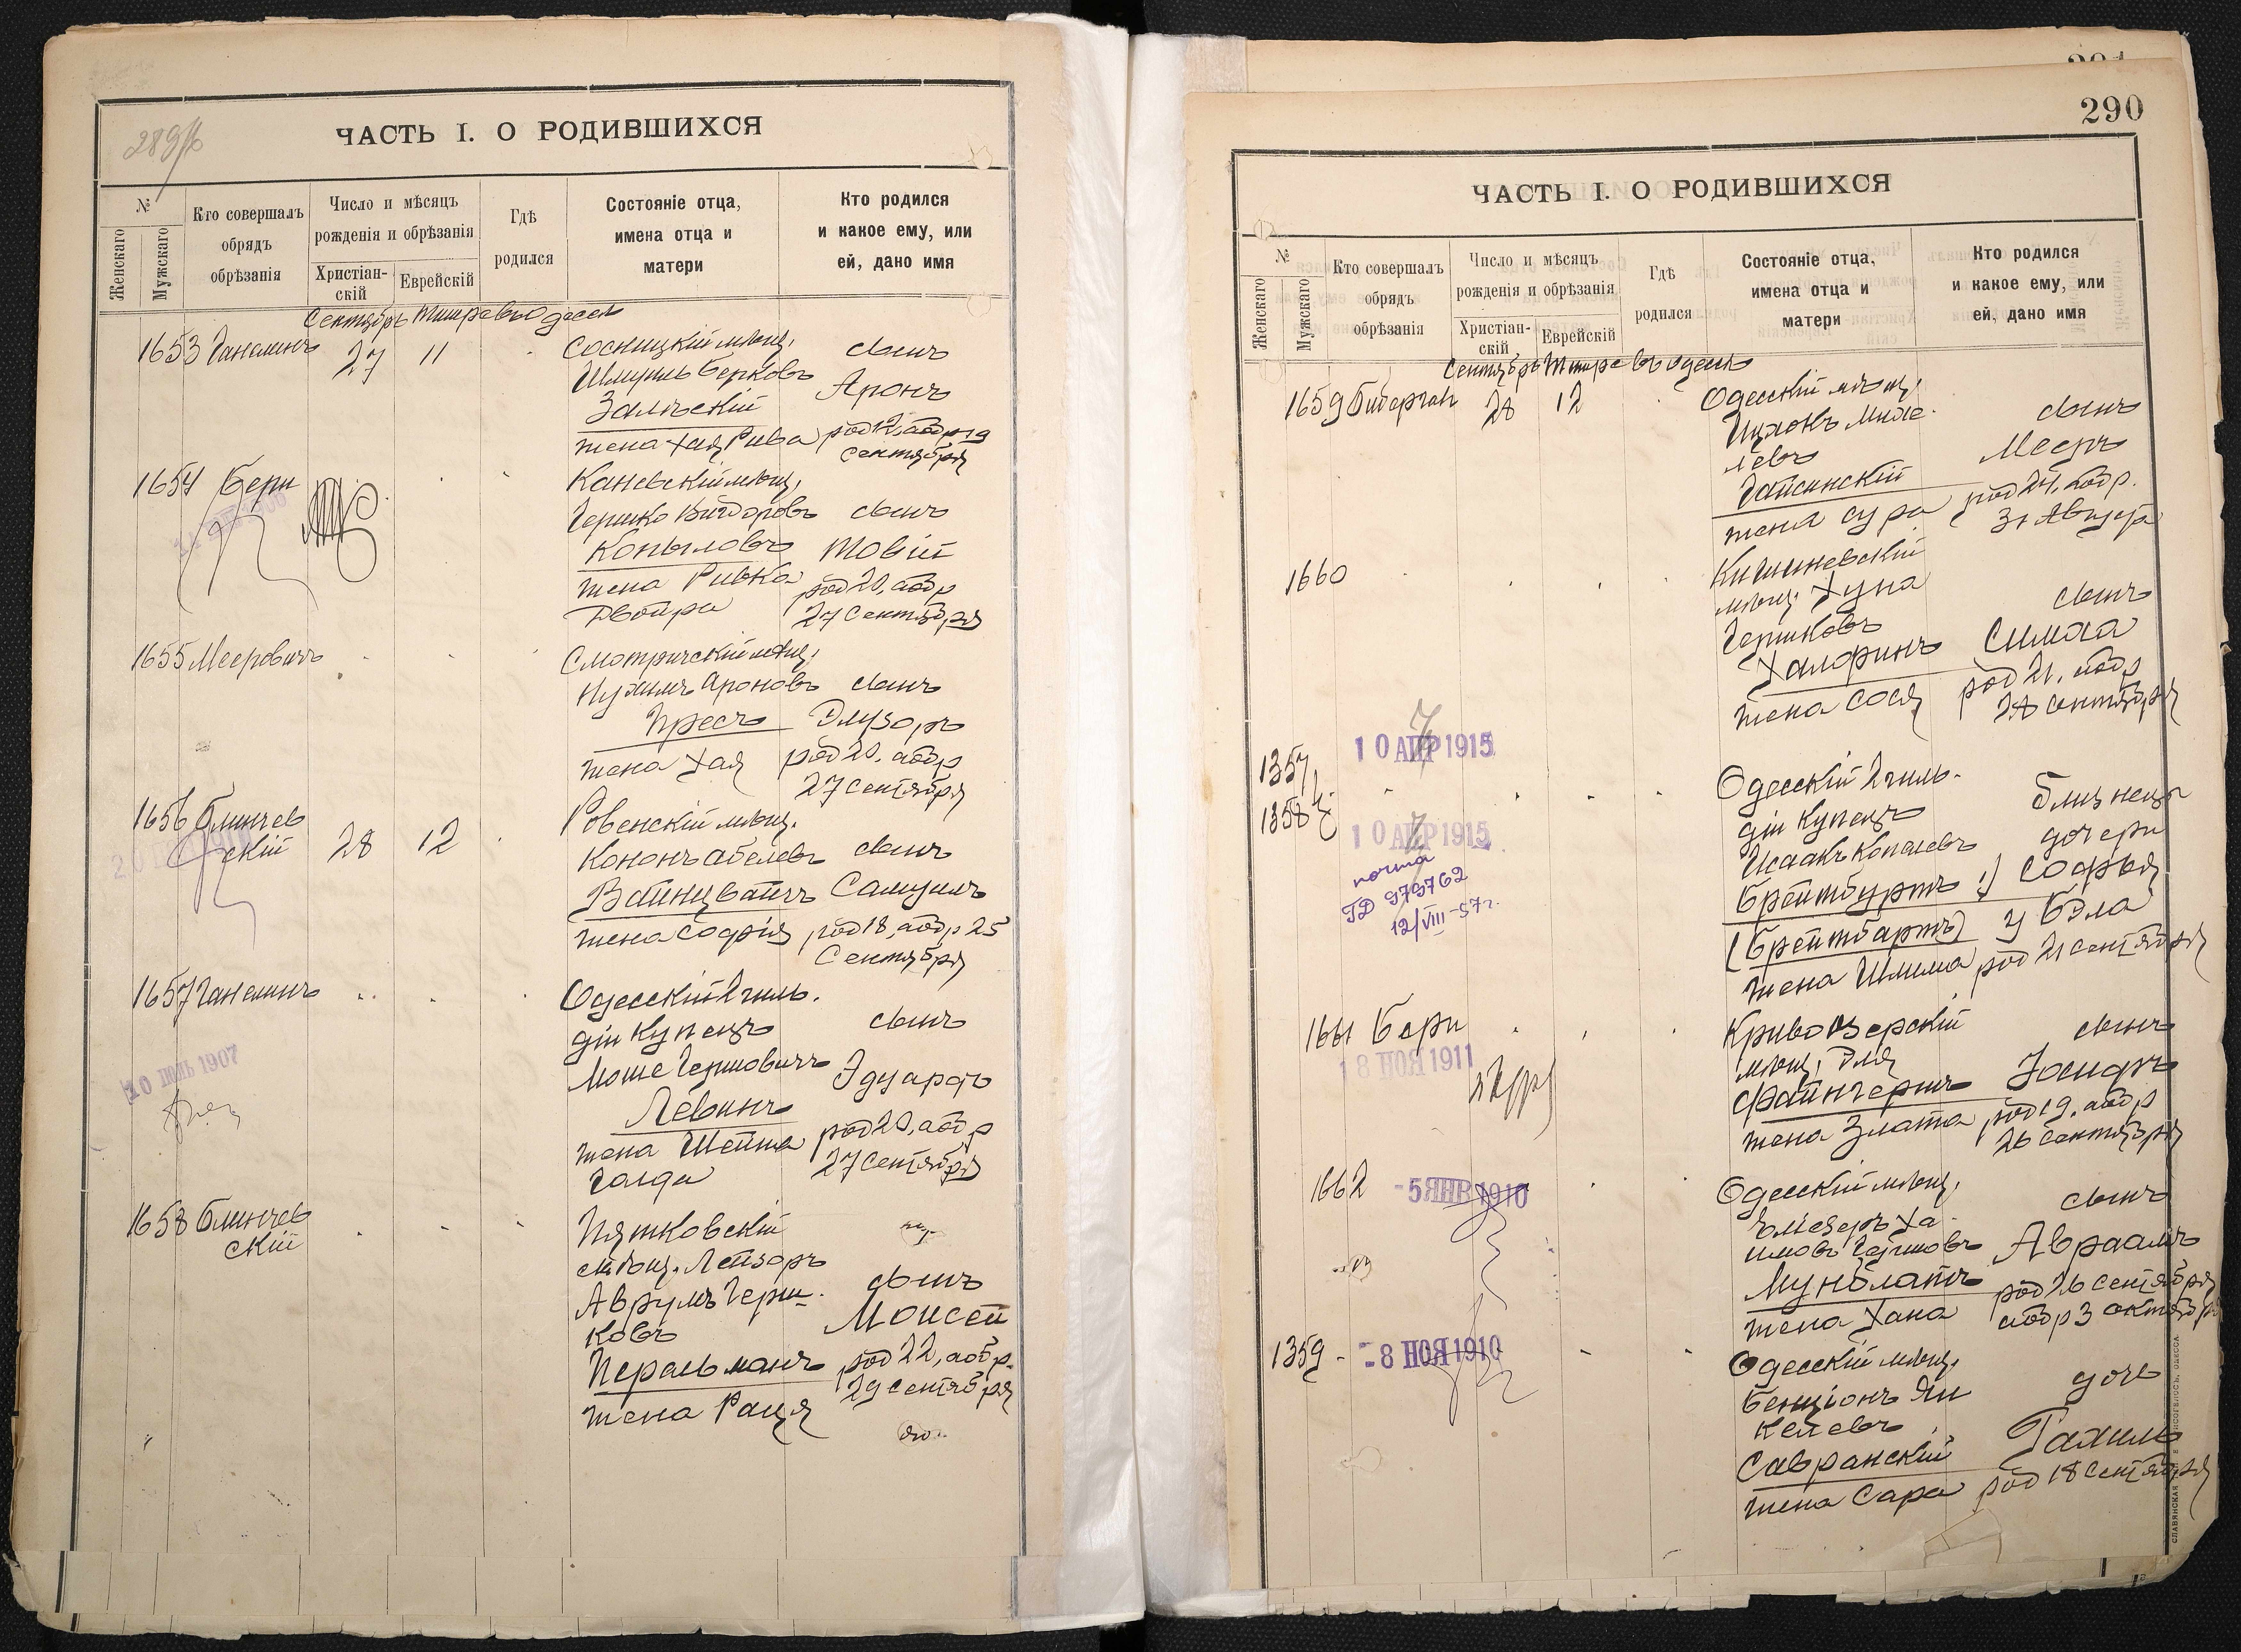 289
ЧАСТЬ I. О РОДИВШИХСЯ
№
Женскаго
Мужскаго
Кто совершалъ
обрядъ
обрѣзанія
Число и мѣсяцъ
рожденія и обрѣзанія
Христіан-
скій
Еврейскій
Гдѣ
родился
Состояніе отца,
имена отца и
матери
Кто родился
и какое ему, или
ей, дано имя
Сентябрь Тишре въ Одессѣ
1653 Ганелинъ 27 11
Сосницкій мѣщ.
Шмуиль Берковъ
Залѣскій
жена Хая Рива
сынъ
Аронъ
род 12, аобр 19
Сентября
1654 Бери
Каневскій мѣщ.
Гершко Вигдоровъ
Копыловъ
жена Ривка
Двойра
сынъ
Товій
род 20, аобр
27 Сентября
1655 Мееровичъ
Смотричскій мѣщ.
Нухимъ Ароновъ
Пресъ
жена Хая
сынъ
Элузоръ
род 20, аобр
27 Сентября
1656 Блинчев
скій 28 12
Ровенскій мѣщ.
Кононъ Абелевъ
Вайнцвайгъ
жена Софія
сынъ
Самуилъ
род 18, аобр 25
Сентября
1657 Ганелинъ
10 ІЮНЬ 1907
Одесскій 2 гиль.
діи Купецъ
Моше Гершовичъ
Левинъ
жена Шейна
Голда
сынъ
Эдуардъ
род 20, аобр
27 Сентября
1658 Блинчев
скій
Пятковскій
мѣщ. Лейзоръ
Аврумъ Герш-
ковъ
Перельманъ
жена Раця
сынъ
Моисей
род 22, аобр
29 Сентября
290
ЧАСТЬ I. О РОДИВШИХСЯ
№
Женскаго
Мужскаго
Кто совершалъ
обрядъ
обрѣзанія
Число и мѣсяцъ
рожденія и обрѣзанія
Христіан-
скій
Еврейскій
Гдѣ
родился
Состояніе отца,
имена отца и
матери
Кто родился
и какое ему, или
ей, дано имя
Сентябрь Тишре въ Одессѣ
1659 Биберган 28 12
Одесскій мѣщ.
Ицхокъ Михе-
левъ
Гайсинскій
жена Сура
сынъ
Мееръ
род 24, аобр.
31 Августа
1660
Кишиневскій
мѣщ. Хуна
Гершковъ
Халфинъ
жена Сося
сынъ
Симха
род 21, аобр
28 Сентября
1357
1358
10 АПР 1915
10 АПР 1915
почта
ГД 979762
12/VIII-57 г.
Одесскій 2 гиль-
діи Купецъ
Исаакъ Копелевъ
Брейтбуртъ
(Брейтбартъ)
жена Шлима
близнецы
дочери
1) Софья
у Бэла
род 21 Сентября
1661 Бери
18 НОЯ 1911
Кривоозерскій
мѣщ. Эля
Файнгершъ
жена Злата
сынъ
Іосифъ
род 19, аобр
26 Сентября
1662 -5 ЯНВ 1910
Одесскій мѣщ.
Эліезеръ Ха-
имовъ Гершовъ
Мунблатъ
жена Хана
сынъ
Авраамъ
род 26 Сентября
аобр 3 Октября
1359 -8 НОЯ 1910
Одесскій мѣщ.
Бенціонъ Ян
келевъ
Савранскій
жена Сара
дочь
Рахиль
род 18 Сентября